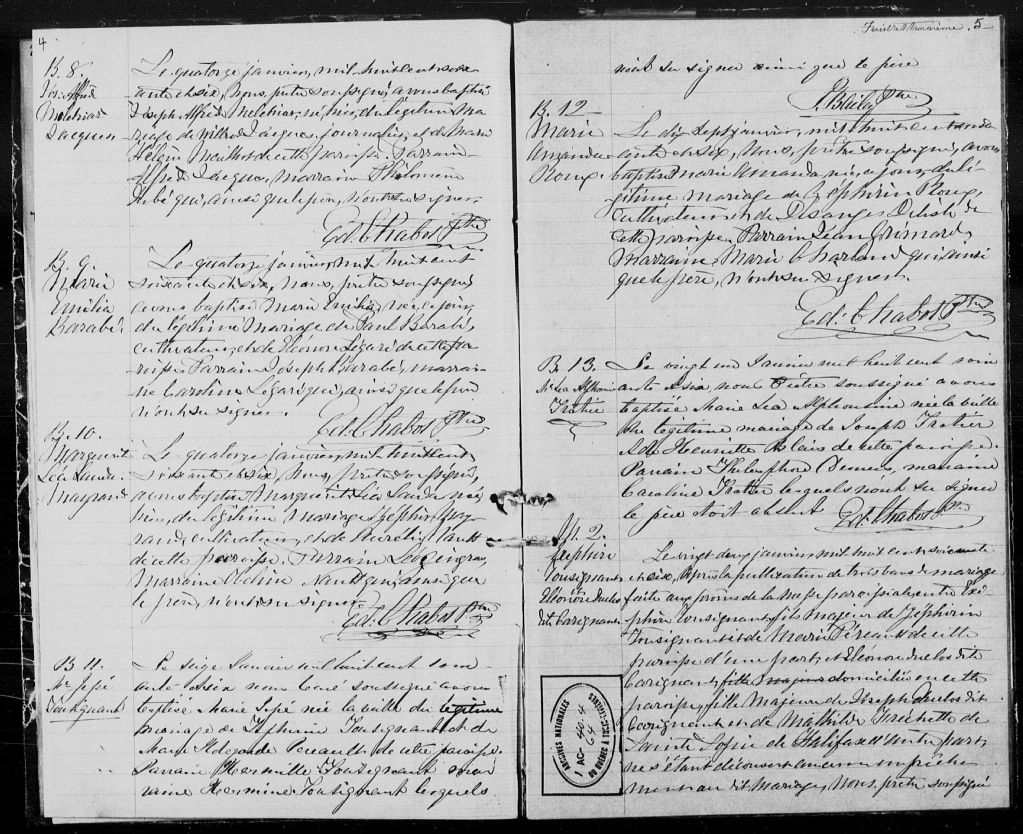 4
B. 8.
Jos. Alfred
Melchias
Jacques
Le quatorze janvier, mil huit cent soix-
ante et six, Nous, prêtre soussigné, avons baptisé
Joseph Alfred Melchias, né hier, du légitime ma-
riage de journalier, et de Marie
Hélène Mailhot de cette paroisse. Parrain
Alfred Jacques, Marraine Philomène
Bébé qui, ainsi que le père, n'ont su signer.
Ed. Chabot Ptre
B. 9.
Marie
Emilia
Barabé
Le quatorze janvier, mil huit cent
soixante et six, Nous, prêtre soussigné
avons baptisé Marie Emilia, née ce jour,
du légitime mariage de Paul Barabé,
cultivateur, et de Eléonore Légaré de cette pa-
roisse. Parrain Joseph Barabé, marrai-
ne Caroline Légaré qui, ainsi que le père
n'ont su signer.
Ed. Chabot Ptre
B. 10.
Marguerite
Léa
Magrand
Le quatorze janvier, mil huit cent
soixante et six, Nous, prêtre soussigné,
avons baptisé Marguerite Léa née
hier, du légitime mariage Zéphirin Ma-
grand, cultivateur, et de
de cette paroisse, Parrain
Marraine qui, ainsi que
le père, n'ont su signer.
Ed. Chabot Ptre
B 11.
Mie Zépé
Tousignant
Le seize Janvier mil huit cent soix-
ante et six nous Curé soussigné avons
baptisé Marie Zépé née la veille du légitime
mariage de Zéphirin Tousignant et de
Marie Perreault de cette paroisse.
Parrain Tousignant mar-
raine Hermine Tousignant lesquels
Feuillet troisième 5
n'ont su signer ainsi que le père
Ptre
B. 12
Marie
Amanda
Roux.
Le dix sept janvier, mil huit cent soix-
ante et six, Nous, prêtre soussigné, avons
baptisé Marie Amanda, née ce jour, du lé-
gitime mariage de Zéphirin Roux,
cultivateur, et de Desanges Delisle de
cette paroisse, Parrain Jean Grimard,
Marraine, Marie Charland qui, ainsi
que le père, n'ont su signer.
Ed. Chabot Ptre
B. 13.
Me Léa Alphon.
Trotier
Le vingt un Janvier mil huit cent soix-
ante et six nous Prêtre soussigné avons
baptisé Marie Léa Alphonsine née la veille
du légitime mariage de Joseph Trotier
et de Henriette Blais de cette paroisse.
Parrain Thélesphore marraine
Caroline Trotier lesquels n'ont su signer
le père étoit absent
Ed. Chabot Ptre
M. 2.
Zéphirin
Tousignant
Eléonore Duclos
dit Carignan
Le vingt deux janvier, mil huit cent soixante
et six, Après la publication de trois bans de mariage
faite aux prônes de la Messe paroissiale entre Zé-
phirin Tousignant, fils majeur de Zéphirin
Tousignant et de Marie Pérault de cette
paroisse d'une part; et Eléonore Duclos dit
Carignan, fille majeure domiciliée en cette
paroisse, fille Majeure de Joseph Duclos dit
Carignan et de Mathilde Frichette de
Sainte Sophie de Halifax d'autre part;
ne s'étant découvert aucun empêche-
ment au dit mariage, Nous, prêtre soussigné
ARCHIVES NATIONALES
1 AC-40-4
64
DU QUEBEC A TROIS-RIVIERES